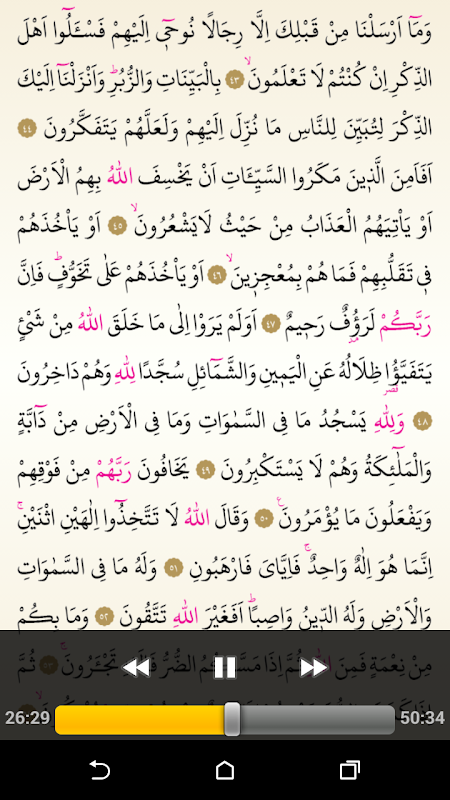 وَمَٓا اَرْسَلْنَا مِنْ قَبْلِكَ اِلَّا رِجَالًا نُوحٖٓي اِلَيْهِمْ فَسْـَٔلُٓوا اَهْلَ
الذِّكْرِ اِنْ كُنْتُمْ لَا تَعْلَمُونَۙ ﴿٤٣﴾ بِالْبَيِّنَاتِ وَالزُّبُرِۜ وَاَنْزَلْنَٓا اِلَيْكَ
الذِّكْرَ لِتُبَيِّنَ لِلنَّاسِ مَا نُزِّلَ اِلَيْهِمْ وَلَعَلَّهُمْ يَتَفَكَّرُونَ ﴿٤٤﴾
اَفَاَمِنَ الَّذٖينَ مَكَرُوا السَّيِّـَٔاتِ اَنْ يَخْسِفَ اللّٰهُ بِهِمُ الْاَرْضَ
اَوْ يَاْتِيَهُمُ الْعَذَابُ مِنْ حَيْثُ لَا يَشْعُرُونَۙ ﴿٤٥﴾ اَوْ يَاْخُذَهُمْ
فٖي تَقَلُّبِهِمْ فَمَا هُمْ بِمُعْجِزٖينَۙ ﴿٤٦﴾ اَوْ يَاْخُذَهُمْ عَلٰى تَخَوُّفٍۜ فَاِنَّ
رَبَّكُمْ لَرَؤُ۫فٌ رَحٖيمٌ ﴿٤٧﴾ اَوَلَمْ يَرَوْا اِلٰى مَا خَلَقَ اللّٰهُ مِنْ شَيْءٍ
يَتَفَيَّؤُ۬ا ظِلَالُهُ عَنِ الْيَمٖينِ وَالشَّمَٓائِلِ سُجَّدًا لِلّٰهِ وَهُمْ دَاخِرُونَ
﴿٤٨﴾ وَلِلّٰهِ يَسْجُدُ مَا فِي السَّمٰوَاتِ وَمَا فِي الْاَرْضِ مِنْ دَٓابَّةٍ
وَالْمَلٰٓئِكَةُ وَهُمْ لَا يَسْتَكْبِرُونَ ﴿٤٩﴾ يَخَافُونَ رَبَّهُمْ مِنْ فَوْقِهِمْ
وَيَفْعَلُونَ مَا يُؤْمَرُونَ ﴿٥٠﴾ وَقَالَ اللّٰهُ لَا تَتَّخِذُٓوا اِلٰهَيْنِ اثْنَيْنِۚ
اِنَّمَا هُوَ اِلٰهٌ وَاحِدٌۚ فَاِيَّايَ فَارْهَبُونِ ﴿٥١﴾ وَلَهُ مَا فِي السَّمٰوَاتِ
وَالْاَرْضِ وَلَهُ الدّٖينُ وَاصِبًاۜ اَفَغَيْرَ اللّٰهِ تَتَّقُونَ ﴿٥٢﴾ وَمَا بِكُمْ
مِنْ نِعْمَةٍ فَمِنَ اللّٰهِ ثُمَّ اِذَا مَسَّكُمُ الضُّرُّ فَاِلَيْهِ تَجْـَٔرُونَۚ ﴿٥٣﴾ ثُمَّ
26:29 50:34